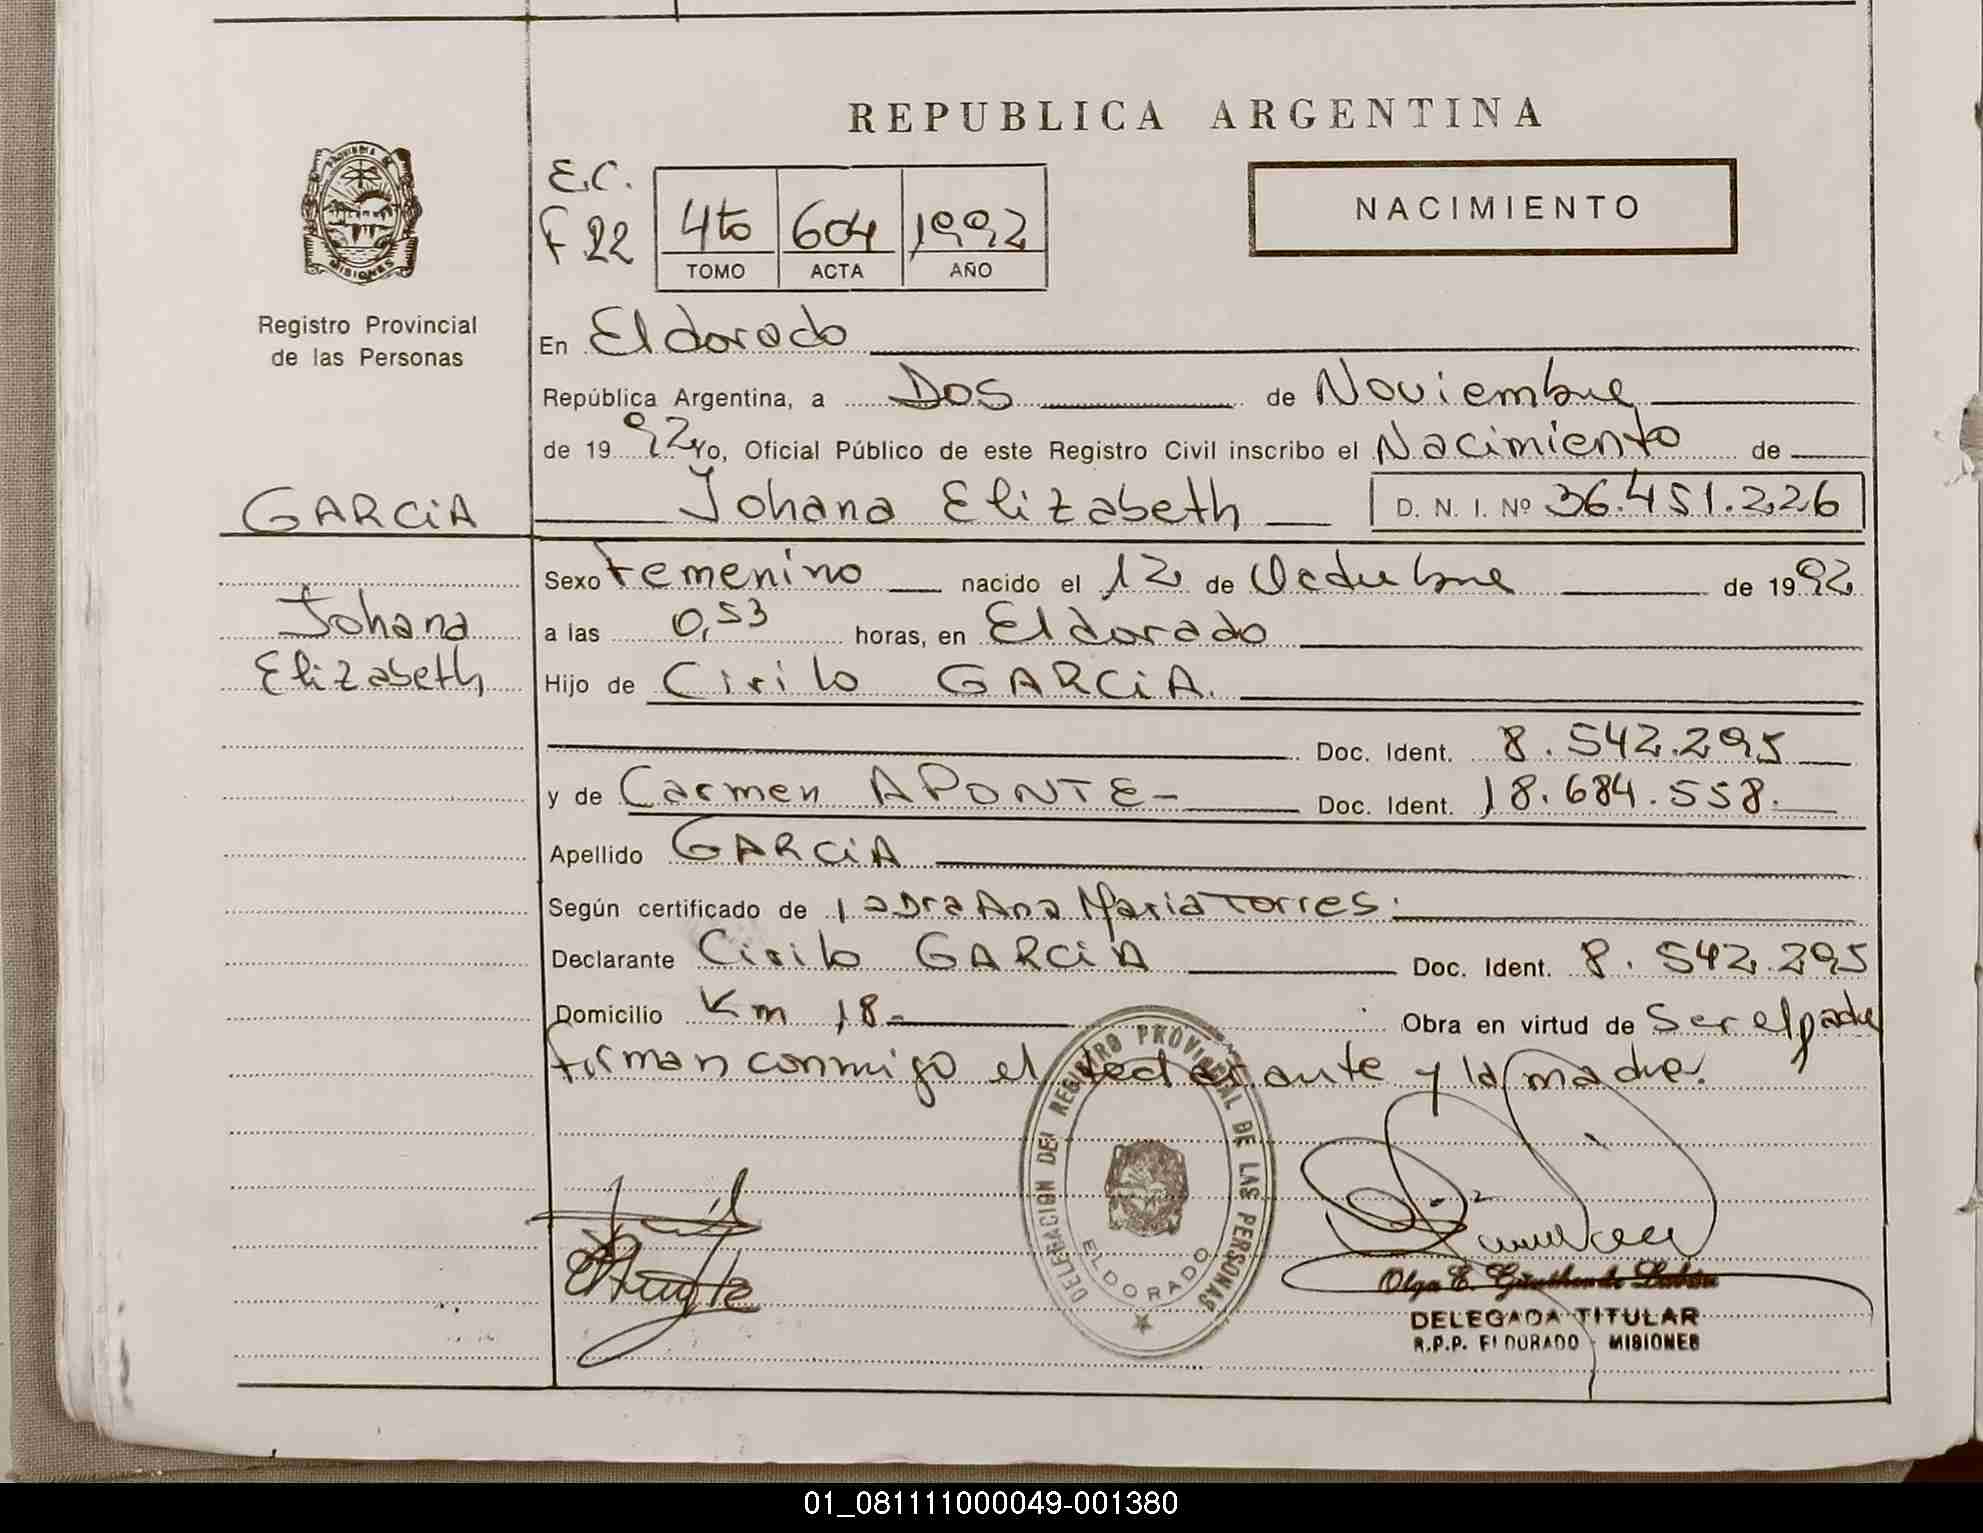 REPUBLICA ARGENTINA
PROVINCIA DE
MISIONES
Registro Provincial
de las Personas
GARCiA
Johana
Elizabeth
E.C.
F 22
4to 604 1992
TOMO ACTA AÑO
NACIMIENTO
En Eldorado
República Argentina, a Dos de Noviembre
de 1992 yo, Oficial Público de este Registro Civil inscribo el Nacimiento de
Johana Elizabeth D. N. I. Nº 36.451.226
Sexo Femenino nacido el 12 de Octubre de 1992
a las 0,53 horas, en Eldorado
Hijo de Cirilo GARCiA.
Doc. Ident. 8.542.295
y de Carmen APONTE- Doc. Ident. 18.684.558.
Apellido GARCiA
Según certificado de la Dra Ana Maria Torres.
Declarante Cirilo GARCiA Doc. Ident. 8.542.295
Domicilio Km 18- Obra en virtud de Ser el padre
firman conmigo el declarante y la madre.
DELEGACION DEL REGISTRO PROVINCIAL DE LAS PERSONAS
ELDORADO
Olga E.
DELEGADA TITULAR
R.P.P. ELDORADO - MISIONES
01_081111000049-001380